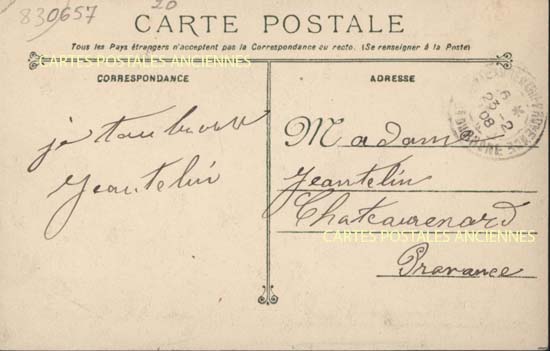 830657
20
CARTE POSTALE
Tous les Pays étrangers n'acceptent pas la Correspondance au recto. (Se renseigner à la Poste)
CARTES POSTALES ANCIENNES
CORRESPONDANCE
ADRESSE
je
Jeantelin
Madame
Jeantelin
Chateaurenard
CARTES POSTALES ANCIENNES
Provence